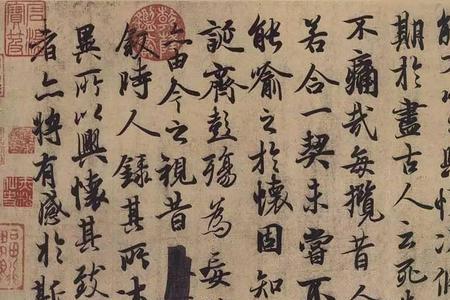 能不以之興懷況
期於盡古人云死
不痛哉每攬昔人
若合一契未嘗不
能喻之於懷固知
誕齊彭殤為妄
亦由今之視昔
敘時人錄其所
異所以興懷其致
者亦將有感於斯